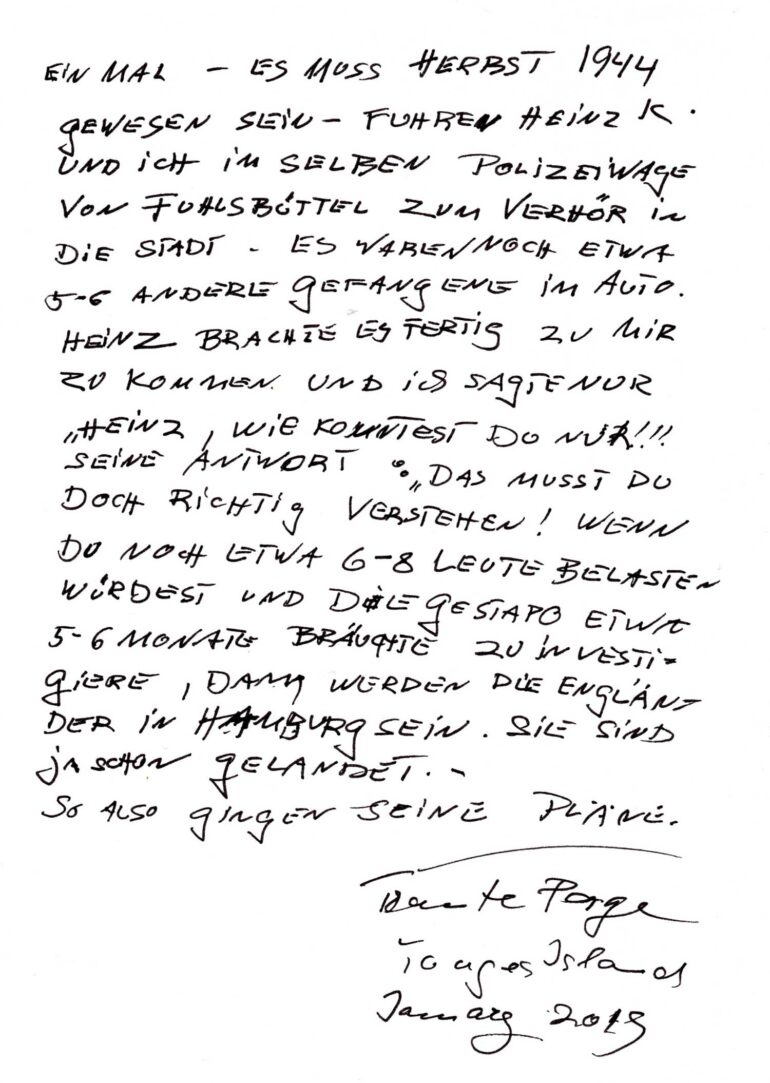 EIN MAL – ES MUSS HERBST 1944
GEWESEN SEIN – FUHREN HEINZ K.
UND ICH IM SELBEN POLIZEIWAGE
VON FUHLSBÜTTEL ZUM VERHÖR IN
DIE STADT – ES WAREN NOCH ETWA
5-6 ANDERE GEFANGENE IM AUTO.
HEINZ BRACHTE ES FERTIG ZU MIR
ZU KOMMEN UND ICH SAGTE NUR
„HEINZ, WIE KONNTEST DU NUR!!!
SEINE ANTWORT : „DAS MUSST DU
DOCH RICHTIG VERSTEHEN! WENN
DU NOCH ETWA 6-8 LEUTE BELASTEN
WÜRDEST UND DIE GESTAPO ETWA
5-6 MONATE BRÄUCHTE ZU INVESTI-
GIERE, DANN WERDEN DIE ENGLÄN-
DER IN HAMBURG SEIN. SIE SIND
JA SCHON GELANDET. –
SO ALSO GINGEN SEINE PLÄNE.
Island
January 2019